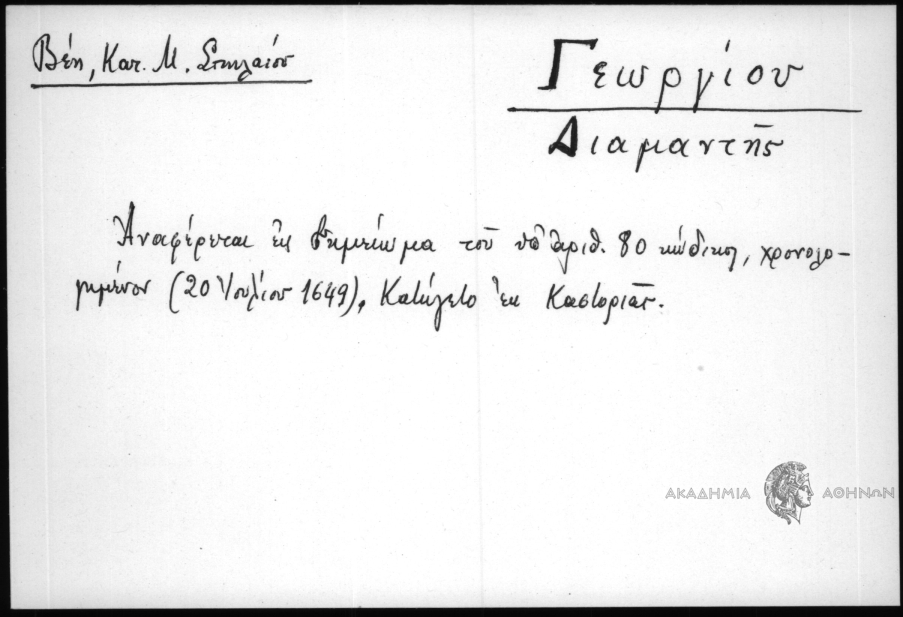 Βέη, Κατ. Μ. Σπηλαίου
Γεωργίου
Διαμαντῆς
Ἀναφέρεται εἰς σημείωμα τοῦ ὑπ' ἀριθ. 80 κώδικος, χρονολο-
γημένον (20 Ἰουλίου 1649), Κατήγετο ἐκ Καστοριᾶς.
ΑΚΑΔΗΜΙΑ ΑΘΗΝΩΝ